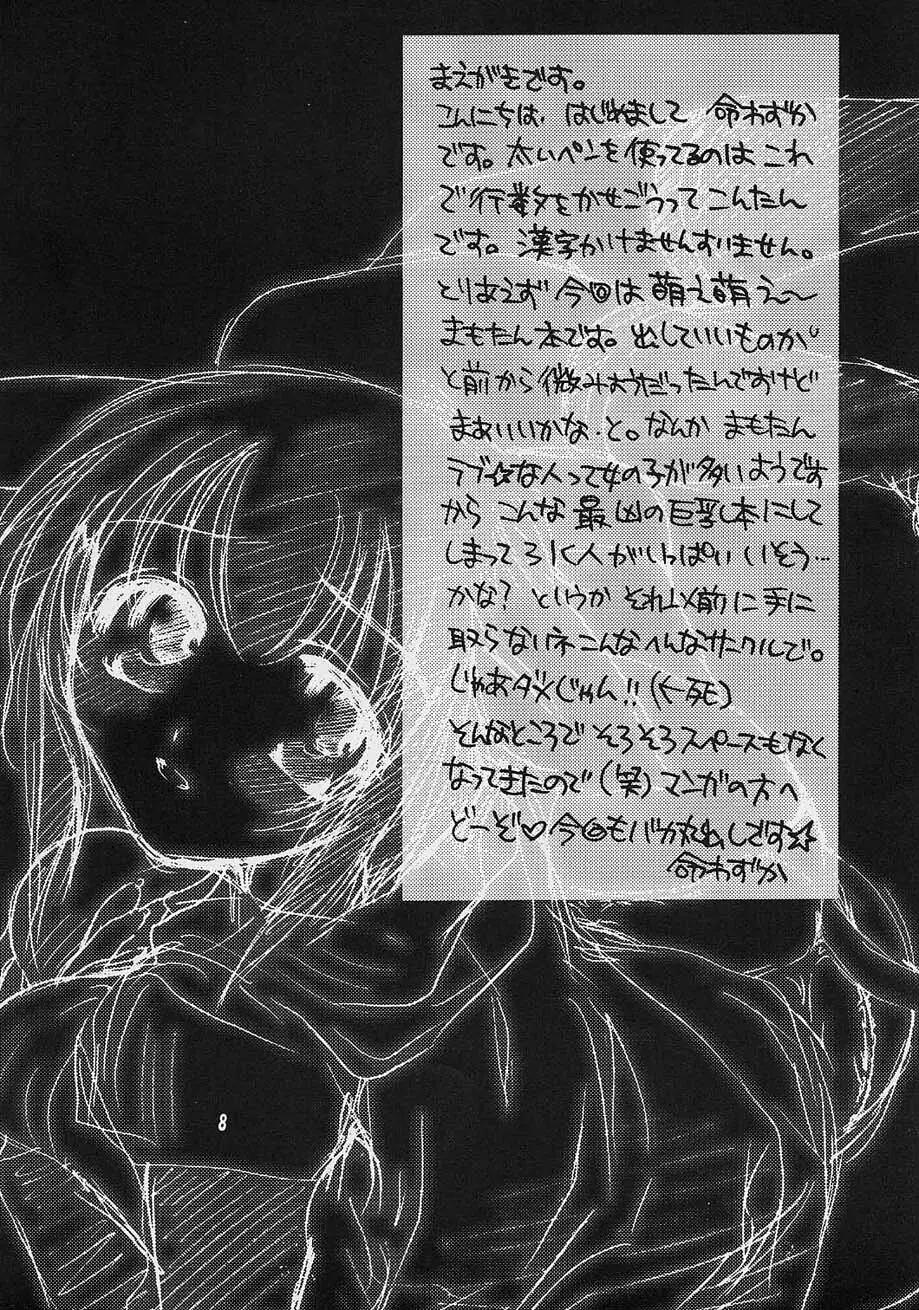 まえがきです。
こんにちは、はじめまして 命わずか
です。太いペンを使ってるのは これ
で行数をかせごうってこんたん
です。漢字かけませんすいません。
とりあえず今回は萌え萌え〜
まもたん本です。出していいものか
と前から微みょうだったんですけど
まぁいいかな、と。なんか まもたん
ラブ☆な人って女の子が多いようです
から こんな 最凶の巨乳本にして
しまって ひく人がいっぱいいそう…
かな? というか それ以前に手に
取らないネこんなへんなサークルで。
じゃあダメじゃん!!(←死)
そんなところで そろそろスペースもなく
なってきたので(笑)マンガの方へ
どーぞ♡今回もバカ丸出しです☆
命わずか
8